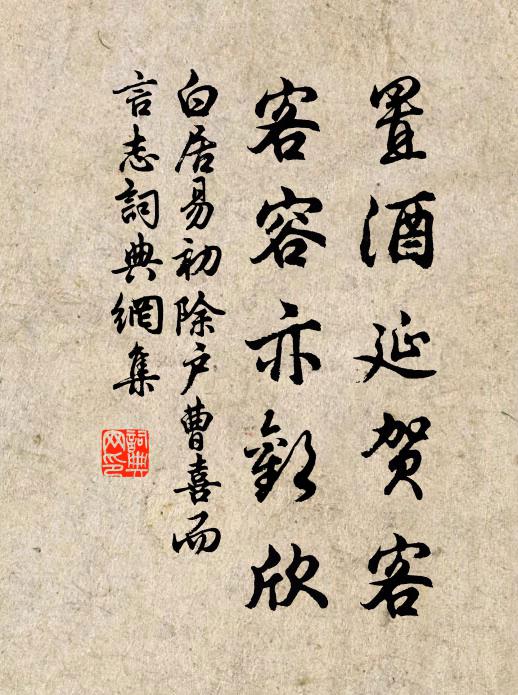 置酒延賀客
客容亦歡欣
白居易初除户曹喜而
言志詞典網集
詞典網印